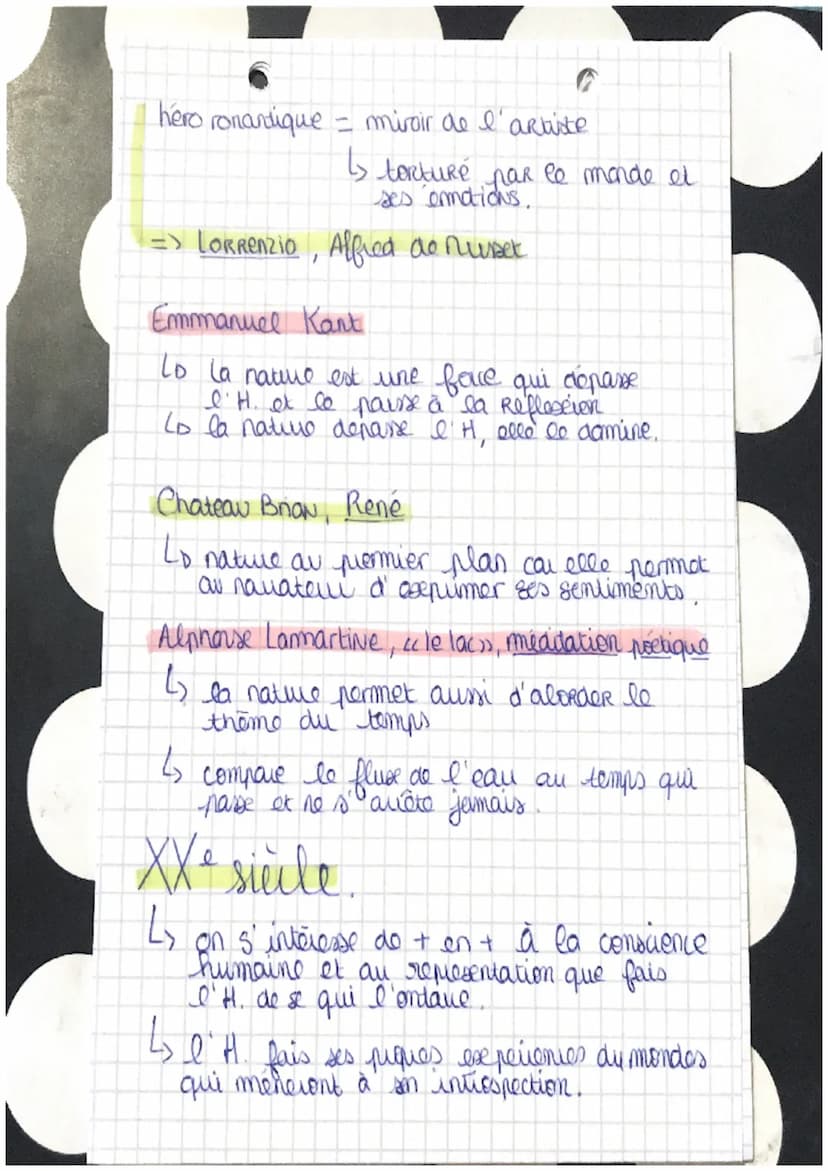 héro romantique = miroir de l'artiste
↳ torturé par le monde et
ses émotions.
=> LORRENZIO, Alfred de Musset
Emmanuel Kant
↳ la nature est une force qui dépasse
l'H. et le pousse à la Réflexion
↳ la nature dépasse l'H, elle le domine.
Chateau Brian, René
↳ nature au premier plan car elle permet
au narrateur d'exprimer ses sentiments.
Alphonse Lammartine, « le lac », méditation poétique
↳ la nature permet aussi d'aborder le
thème du temps
↳ compare le fluxe de l'eau au temps qui
passe et ne s'arrête jamais.
XXe siècle.
↳ on s'intéresse de + en + à la conscience
humaine et au représentation que fais
l'H. de se qui l'entoure.
↳ l'H. fais ses propres expériences du mondes
qui mèneront à son introspection.